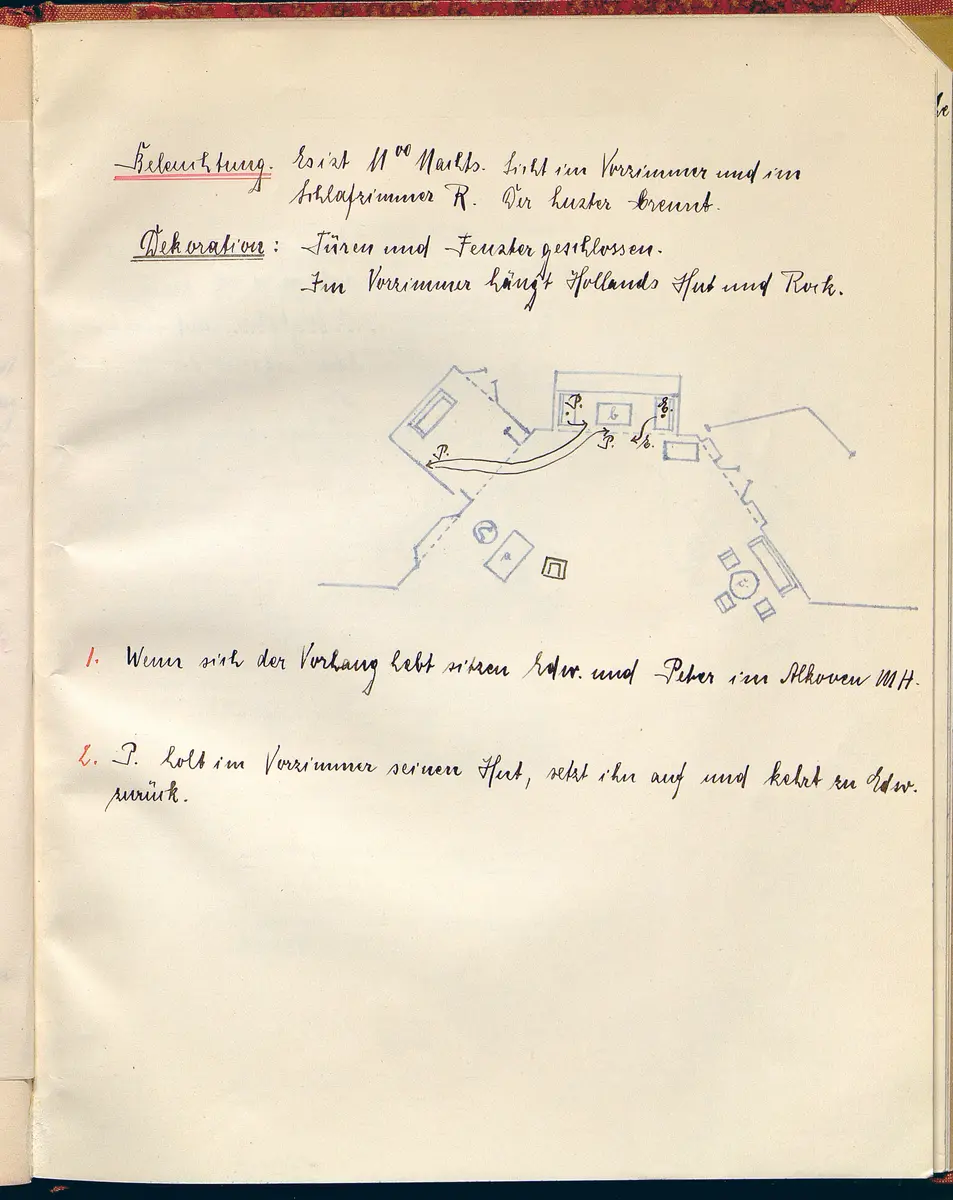 Beleuchtung. Es ist 11⁰⁰ Nachts. Licht im Vorzimmer und im
Schlafzimmer R. Der Luster brennt.
Dekoration: Türen und Fenster geschlossen.
Im Vorzimmer hängt Hollands Hut und Rock.
P. b E.
P. P. E.
a
c
1. Wenn sich der Vorhang hebt sitzen Edw. und Peter im Alkoven MH.
2. P. holt im Vorzimmer seinen Hut, setzt ihn auf und kehrt zu Edw.
zurück.